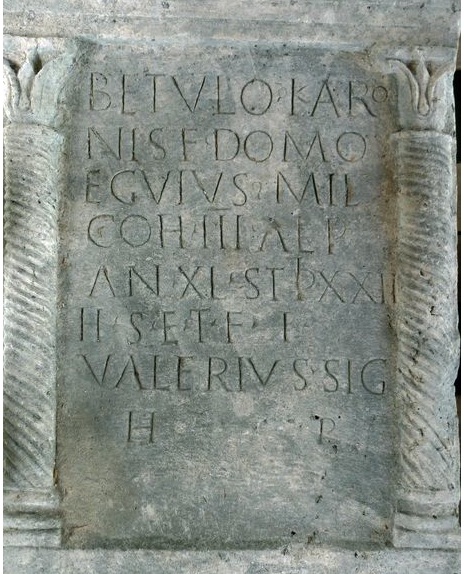 BETVLO·KARO
NIS F·DOMO
EGVIVS·MIL
COH·III·ALP
AN·XL·STPXXII
II·S·E·T·F·I
VALERIVS·SIG
H P